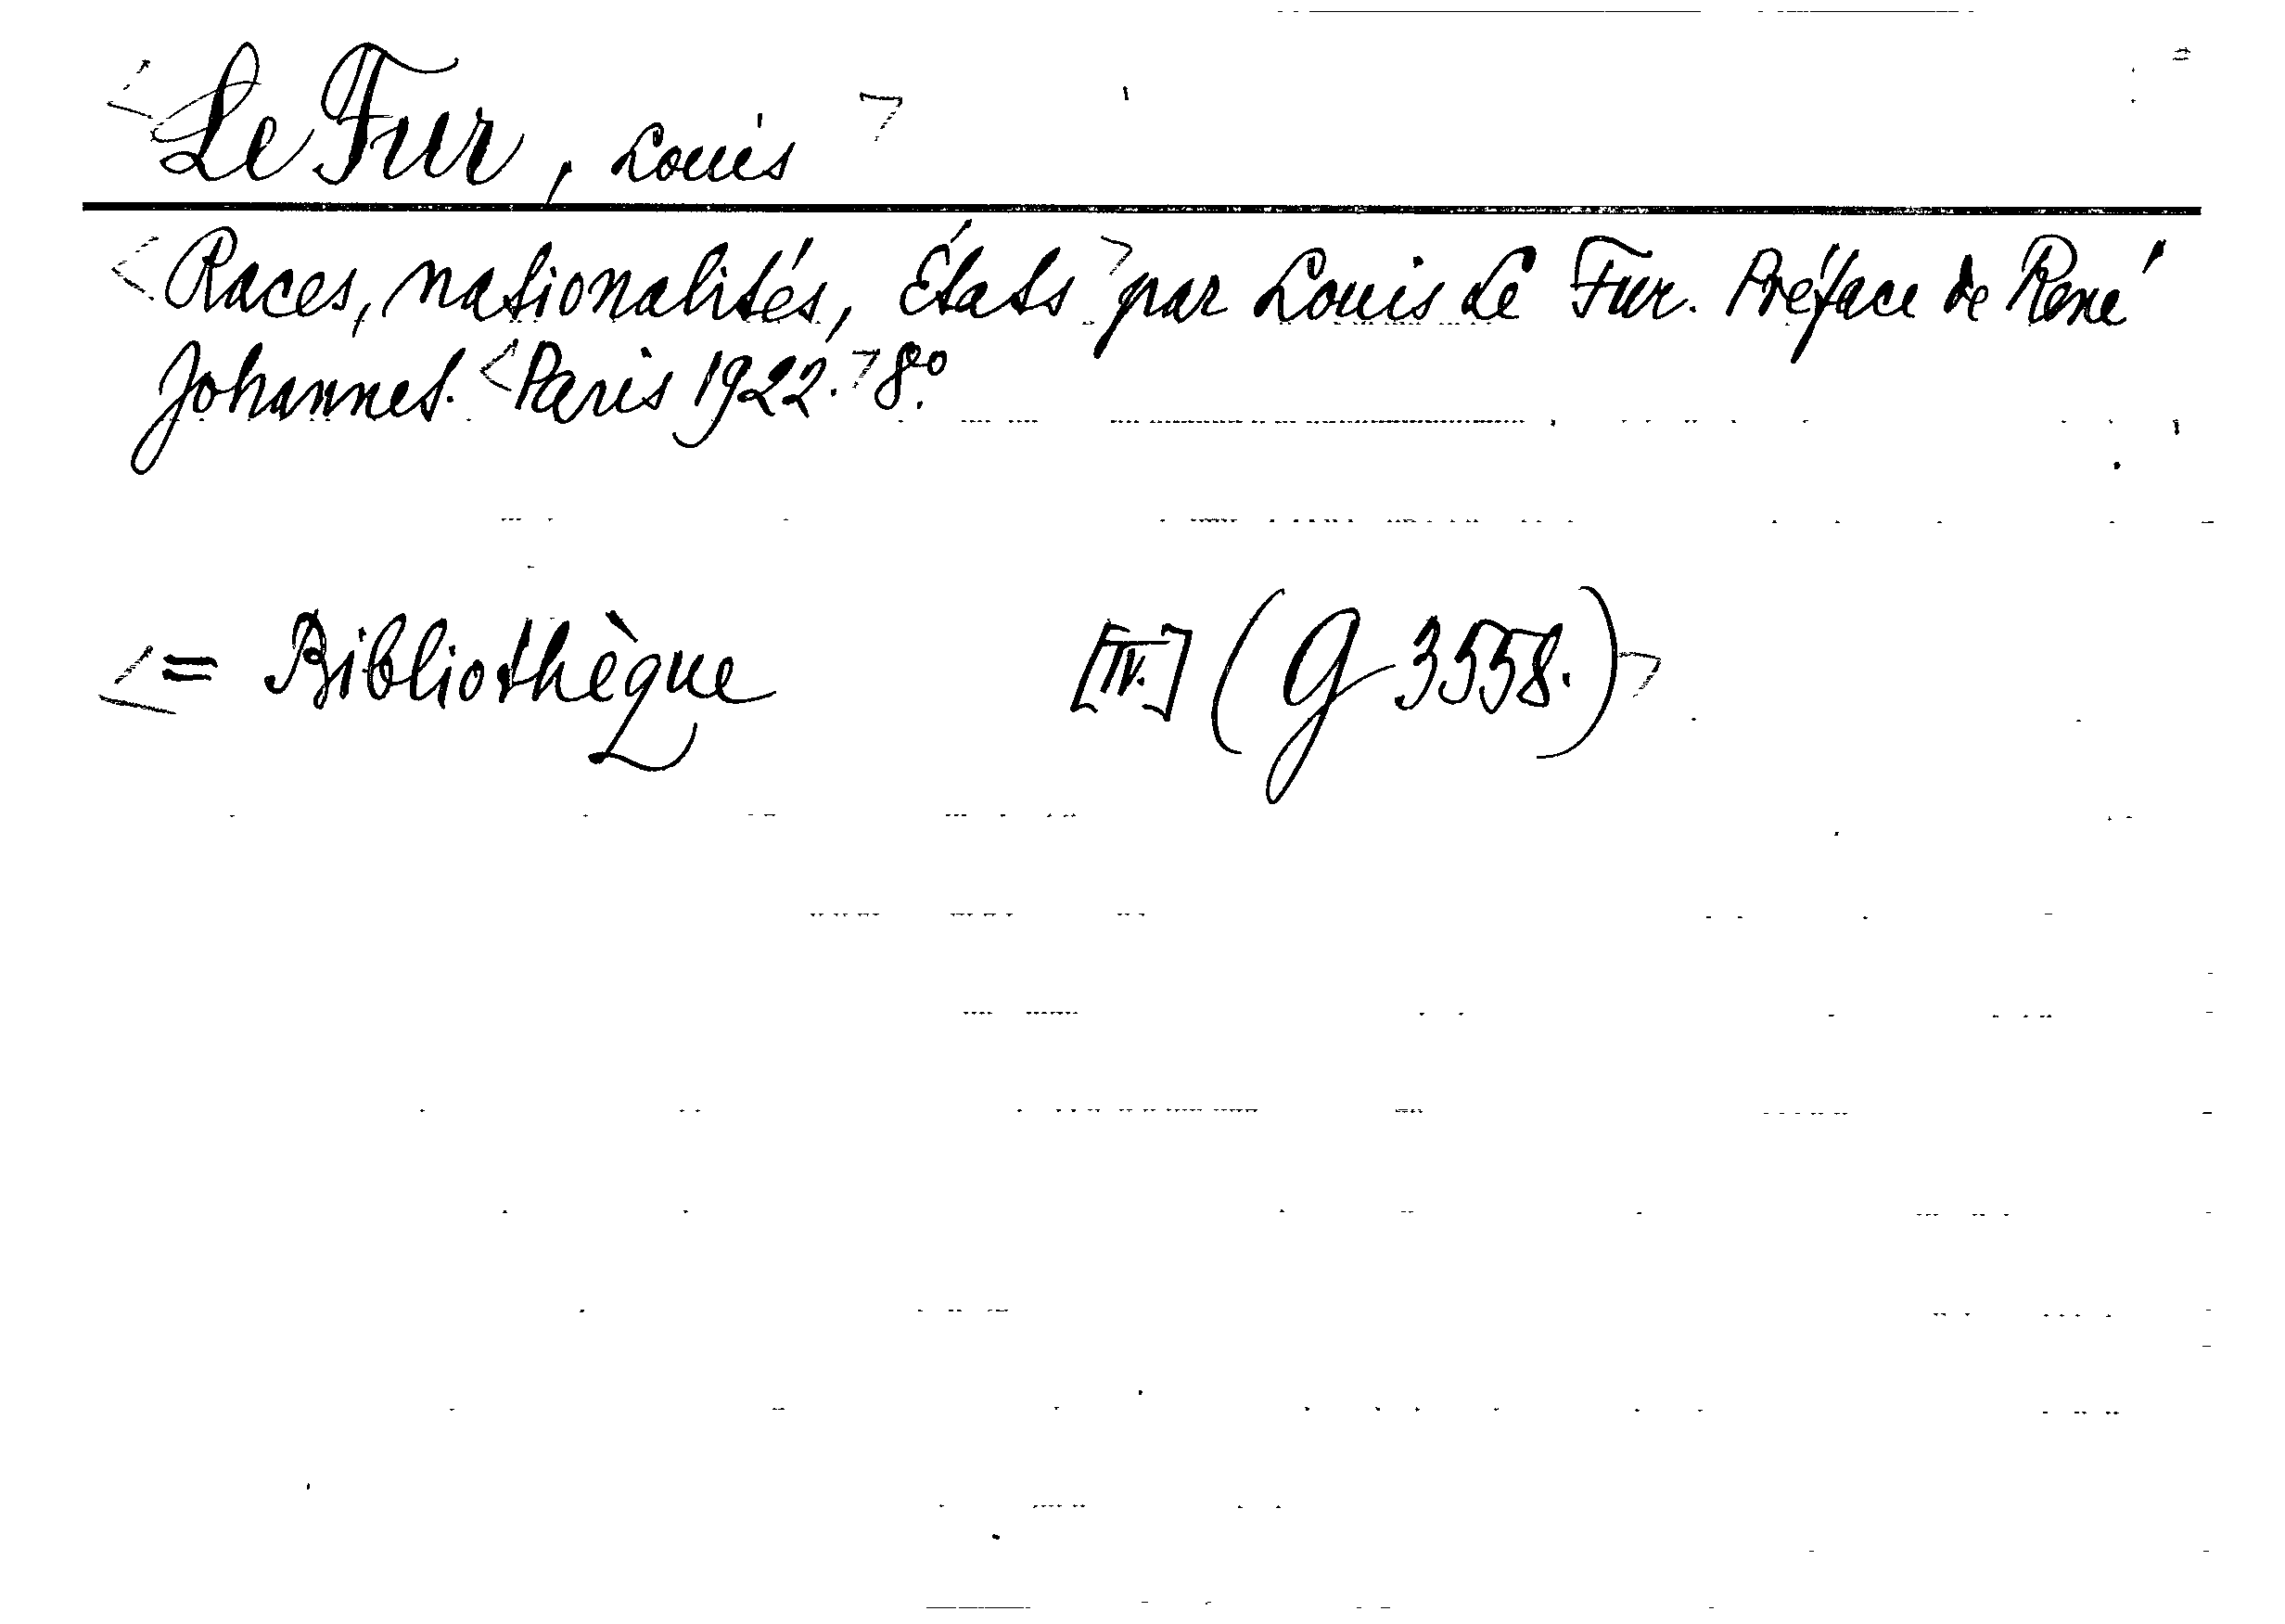 <Le Fur, Louis>
<Races, nationalités, États> par Louis Le Fur. Préface de René
Johannes. <Paris 1922.> 8°.
<= Bibliothèque [IV.] (G 3558.)>